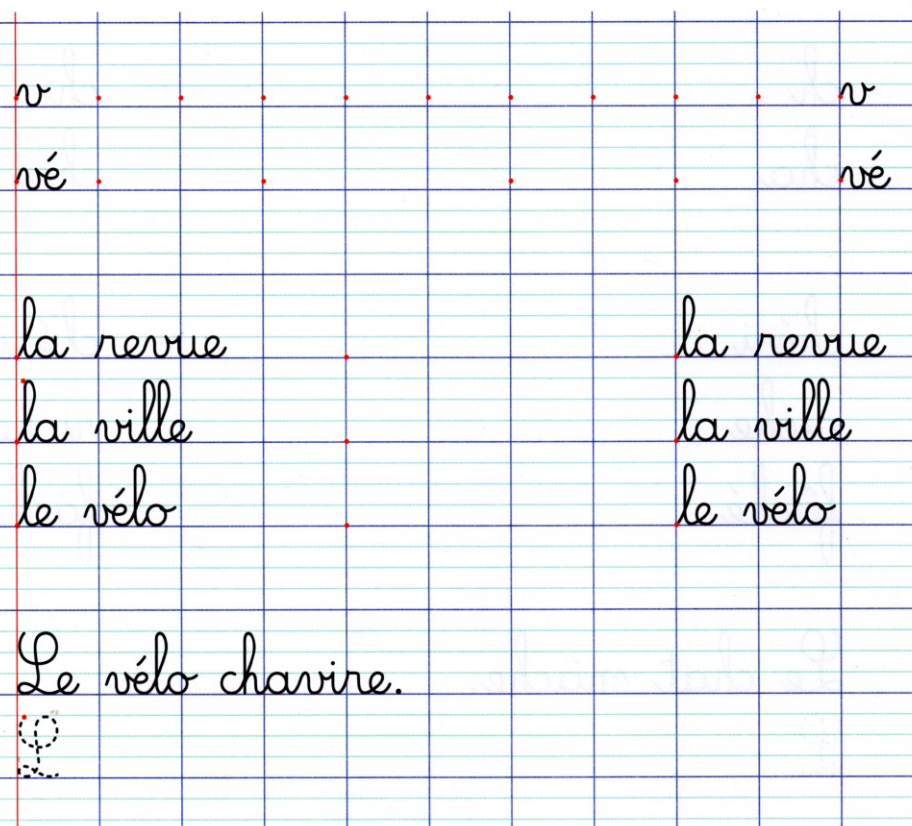 v v
vé vé
la revue la revue
la ville la ville
le vélo le vélo
Le vélo chavire.
L